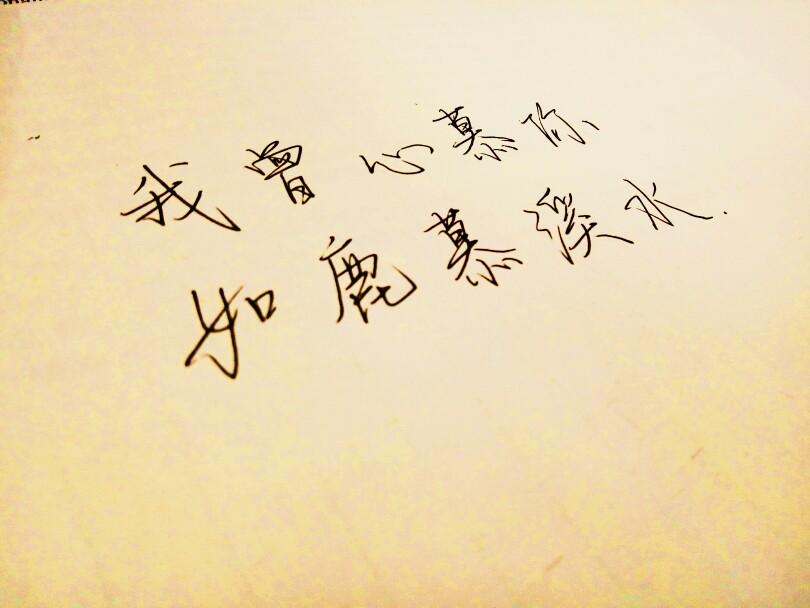 我曾心慕你
如鹿慕溪水.